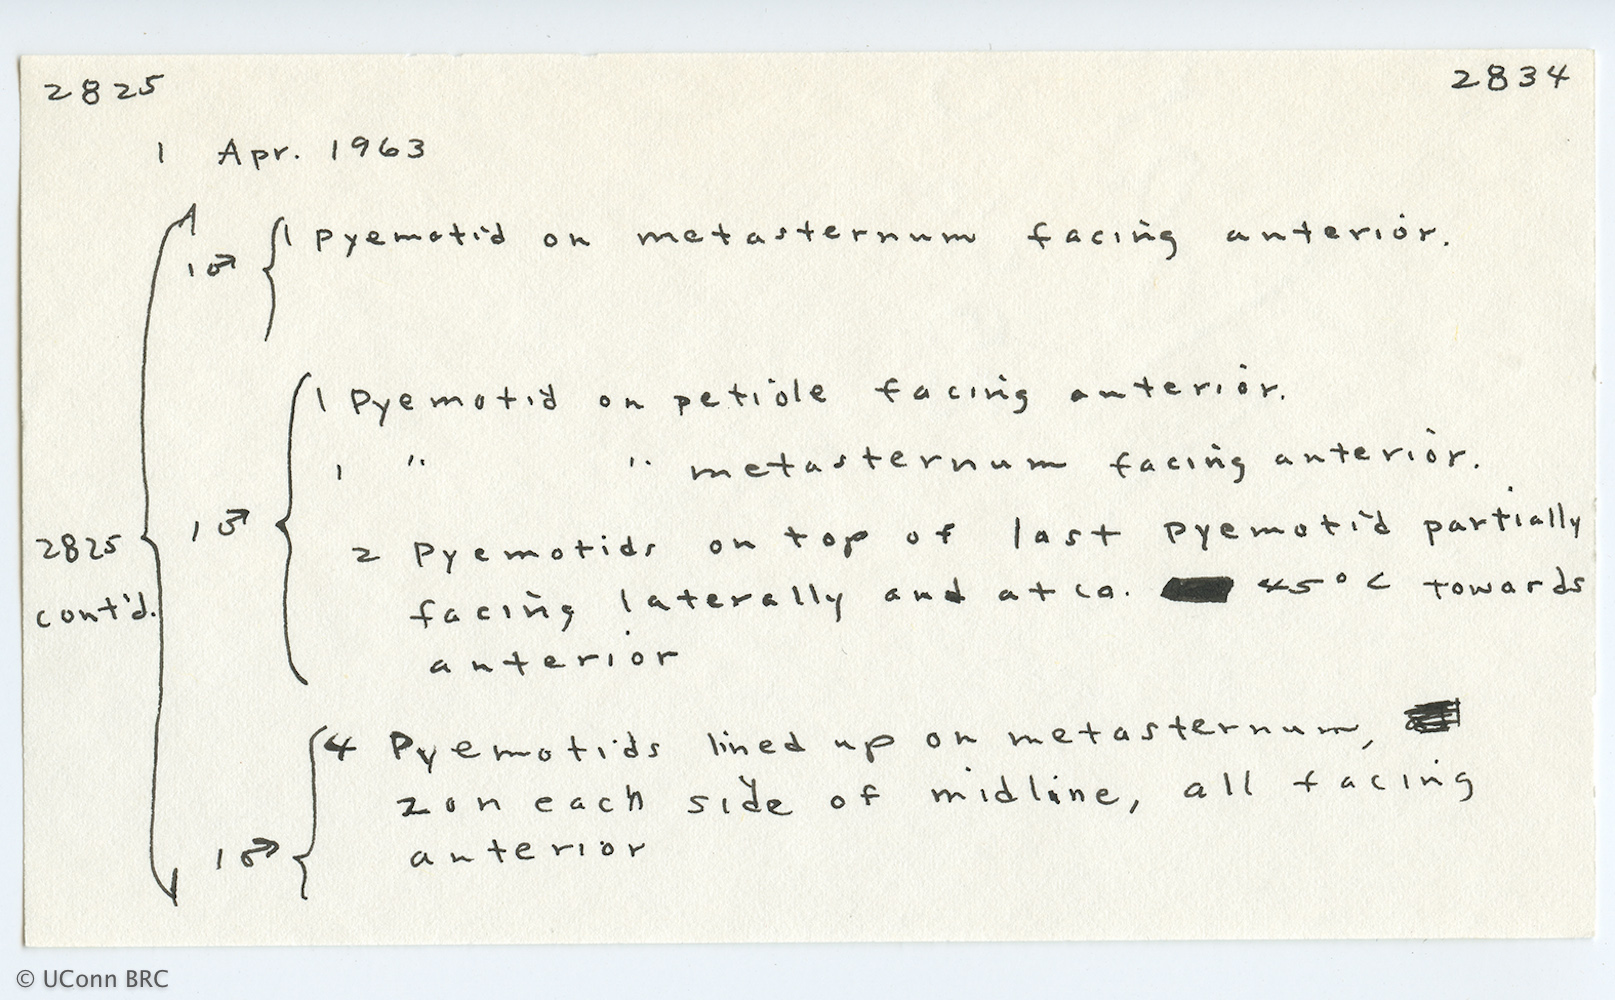 2825 2834
1 Apr. 1963
1 ♂ { 1 pyemotid on metasternum facing anterior.
1 Pyemotid on petiole facing anterior.
1 " " metasternum facing anterior.
2825 1 ♂ { 2 Pyemotids on top of last pyemotid partially
cont'd. facing laterally and at ca. 45° < towards
anterior
4 Pyemotids lined up on metasternum,
2 on each side of midline, all facing
1 ♂ { anterior
© UConn BRC